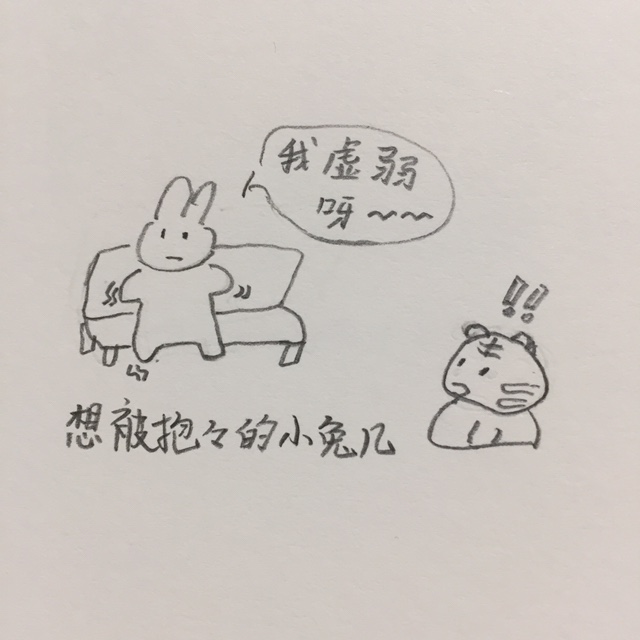 我虚弱
呀～～
!!
想被抱々的小兔儿